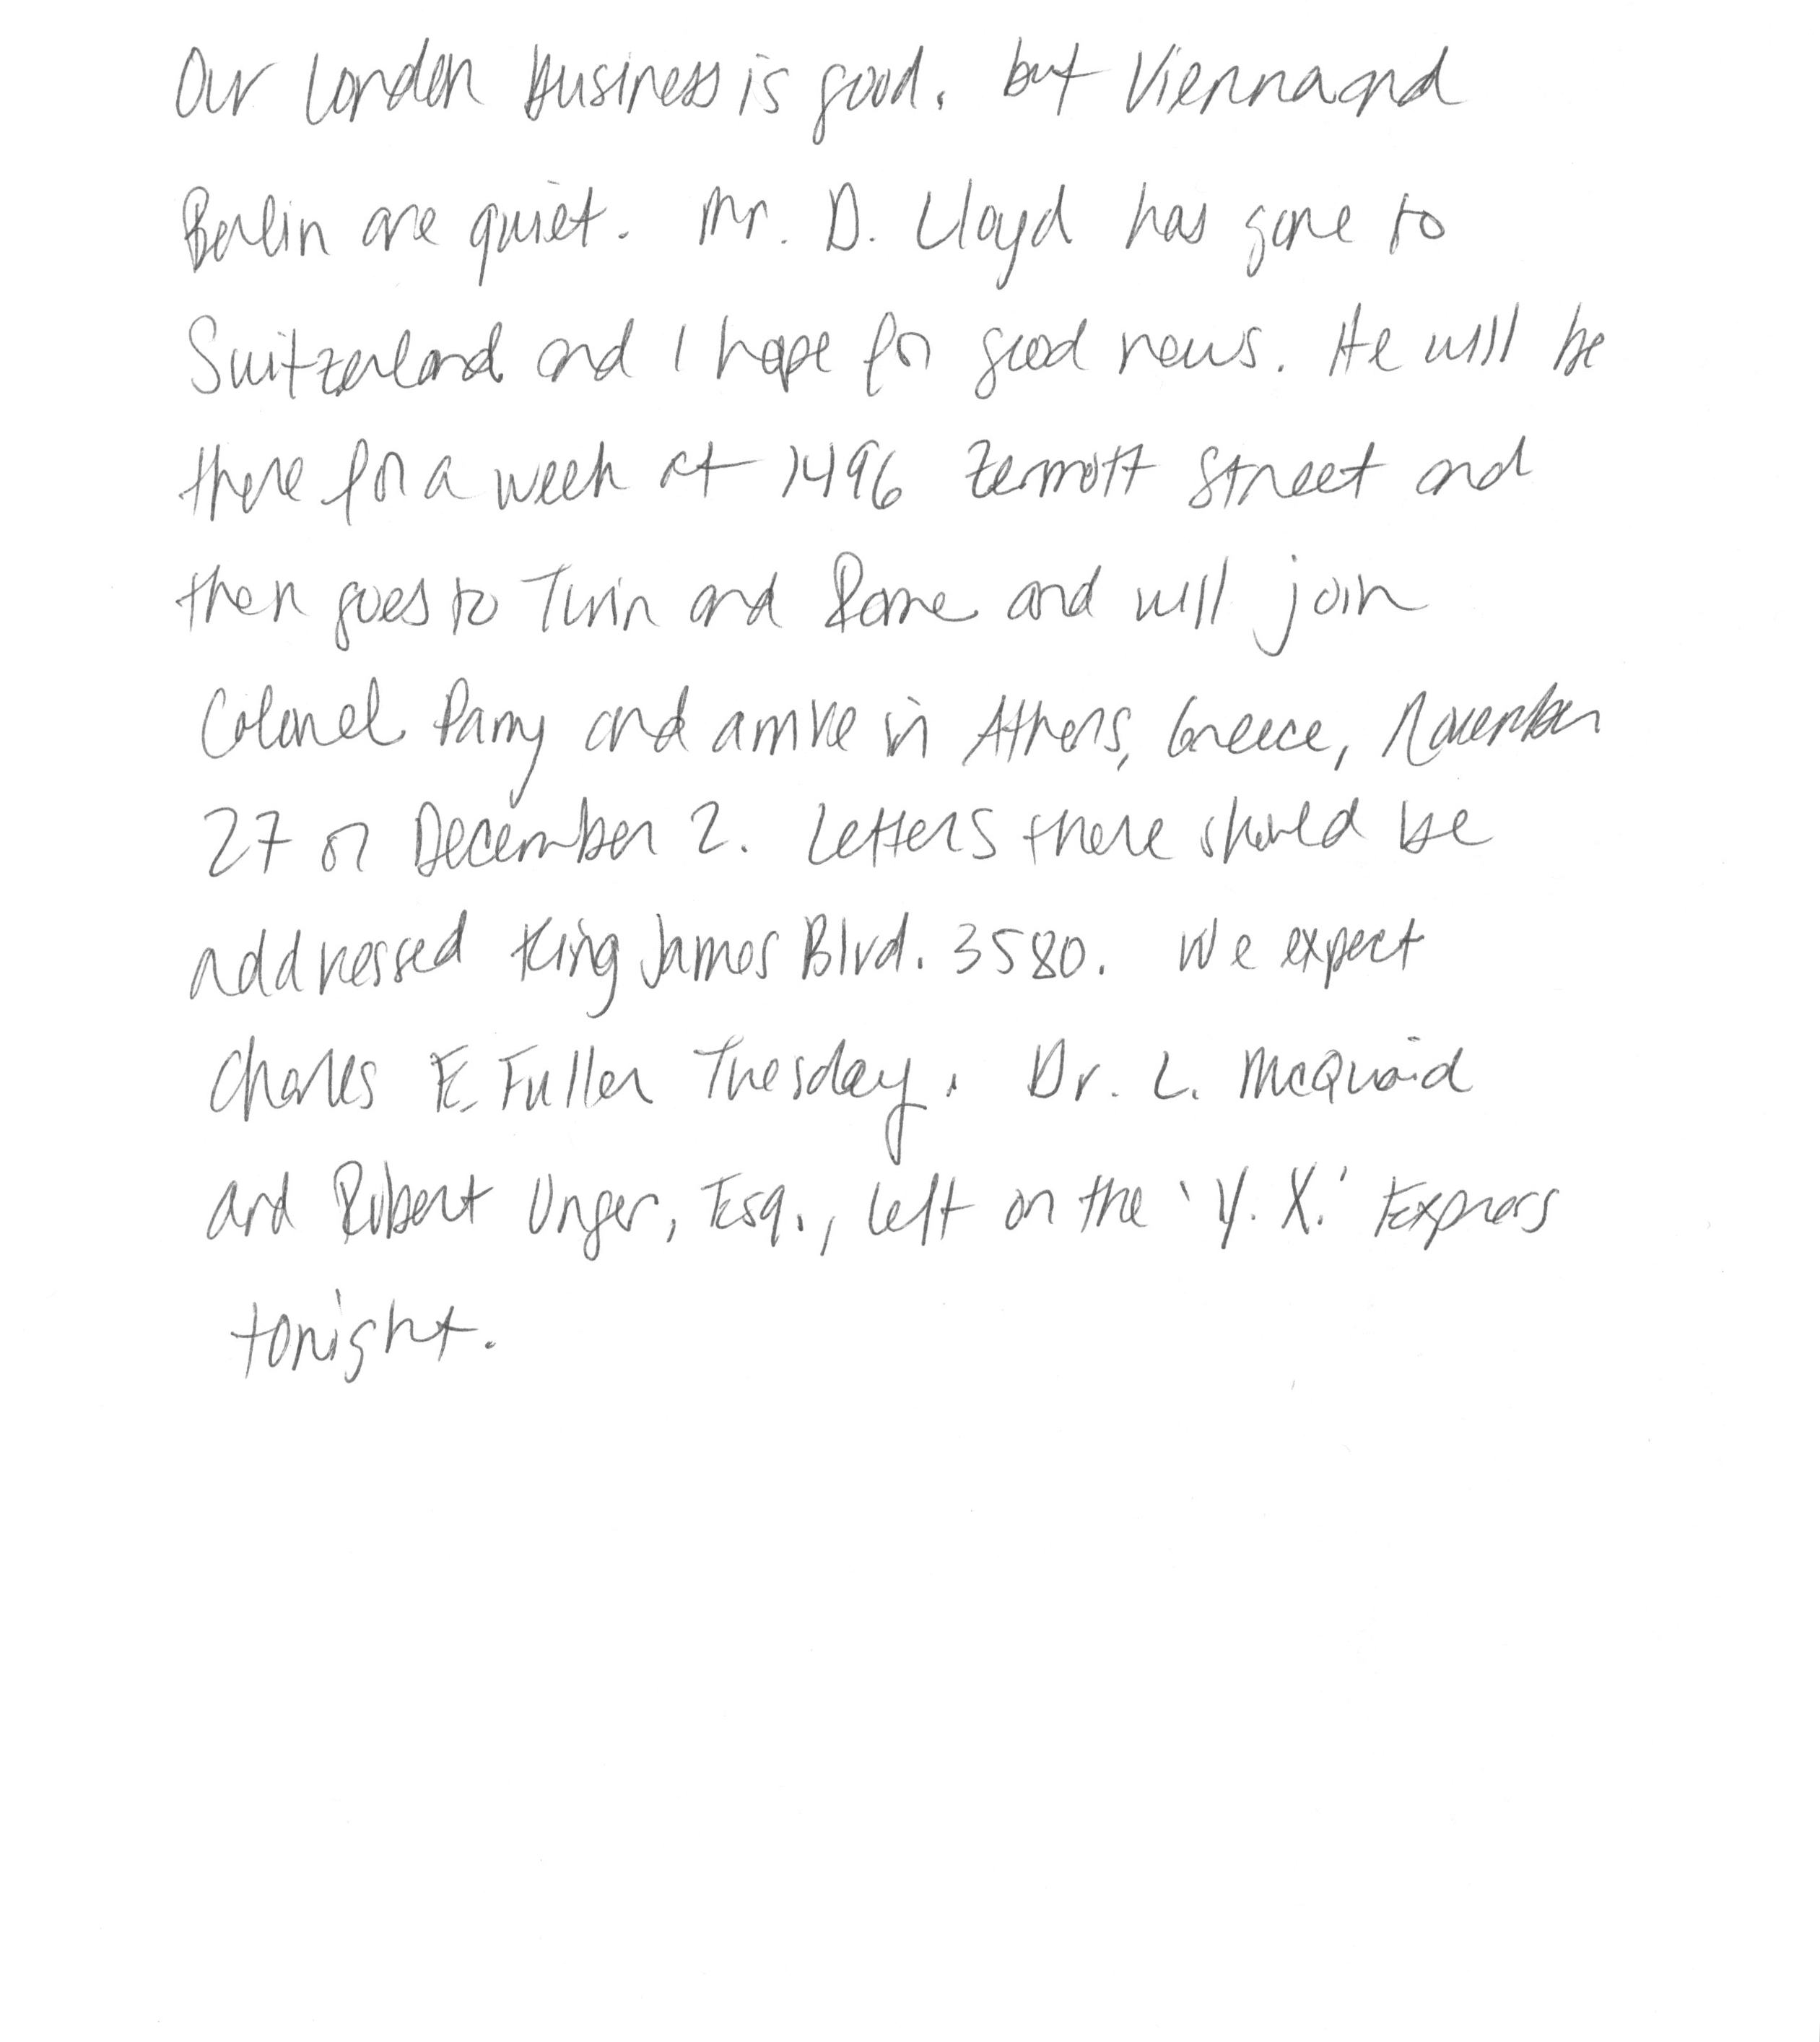 Our London business is good. but Vienna and
Berlin are quiet. Mr. D. Lloyd has gone to
Switzerland and I hope for good news. He will be
there for a week at 1496 Zermott Street and
then goes to Turin and Rome and will join
Colonel Parry and arrive in Athens, Greece, November
27 or December 2. Letters there should be
addressed King James Blvd. 3580. We expect
Charles E. Fuller Tuesday. Dr. L. McQuaid
and Robert Unger, Esq., left on the 'Y. X.' Express
tonight.